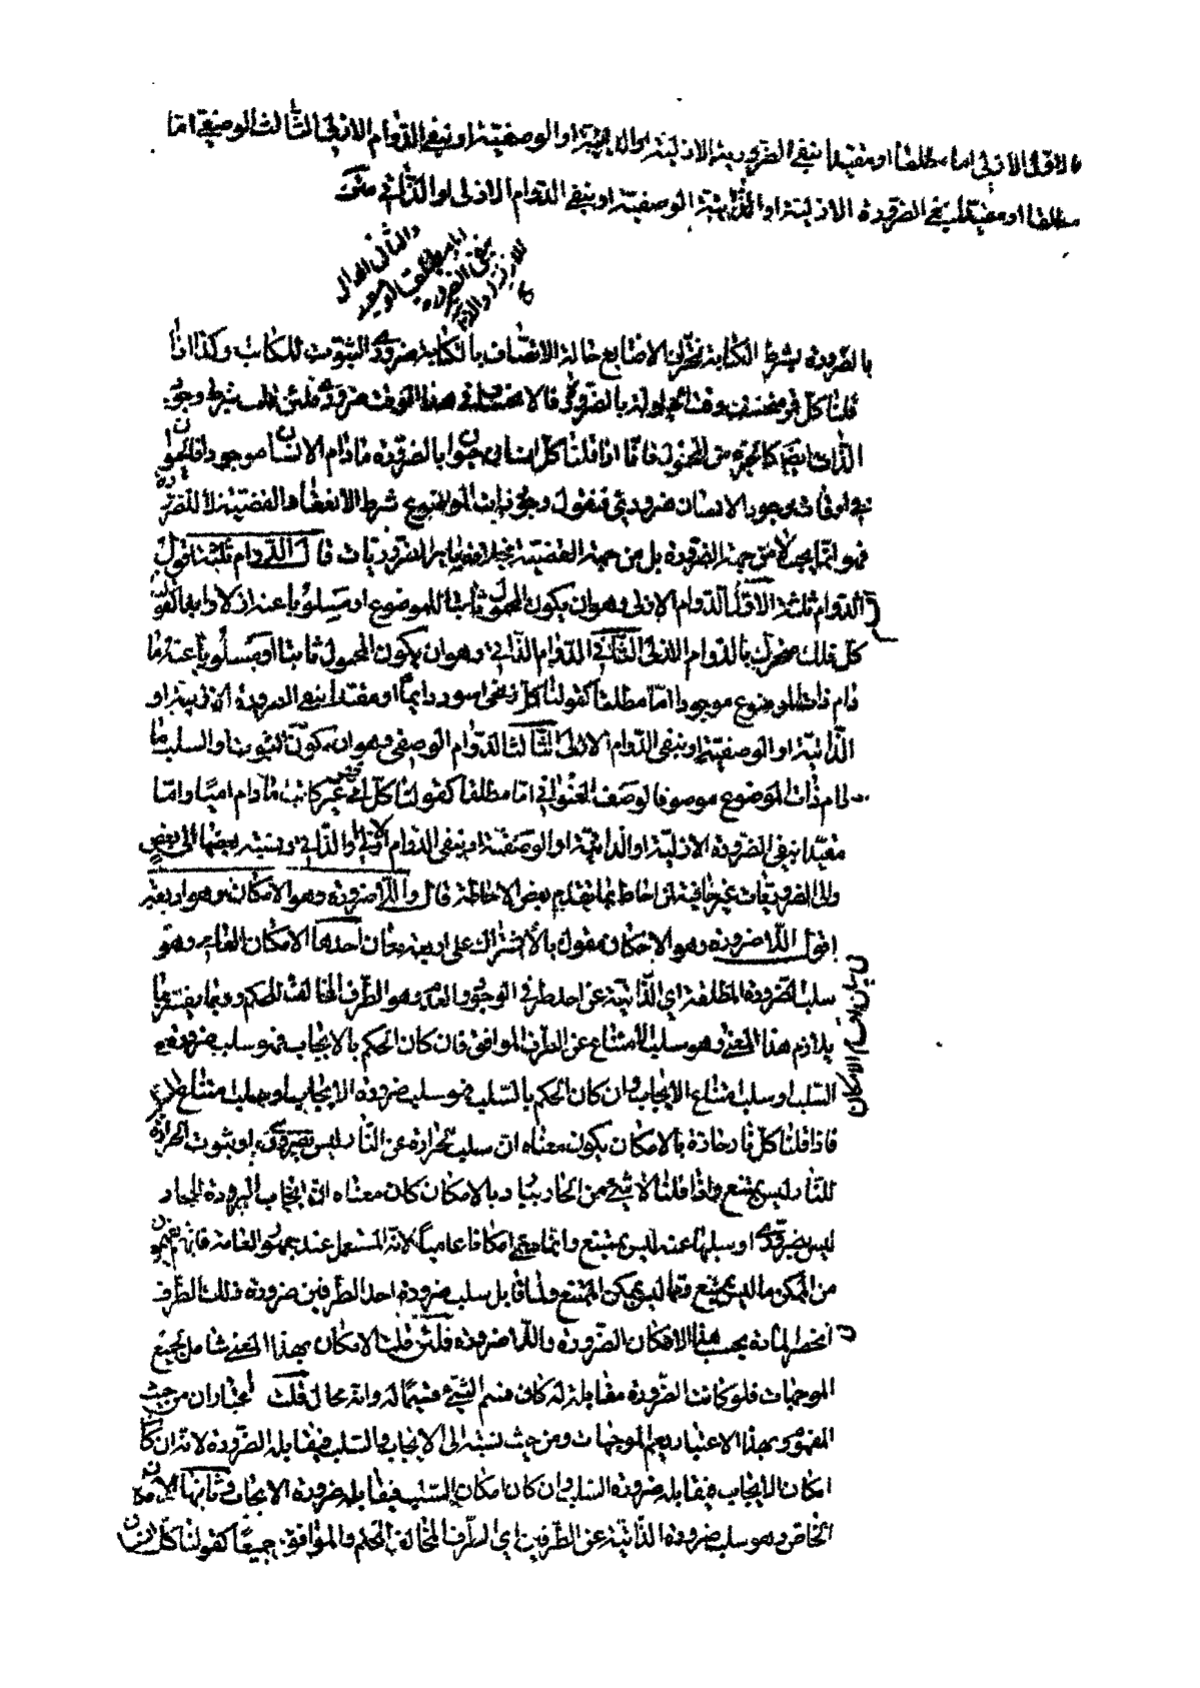 الاول الازلي اما مطلقا او مقيدا بنفي الضرورية الازلية او الذاتية او الوصفية او بنفي الدوام الازلي الثالث الوصفي اما
مطلقا او مقيدا بنفي الضرورة الازلية او الذاتية او الوصفية او بنفي الدوام الازلي او الذاتي متن
والثاني الدوام
اما مطلقا او مقيد
بنفي الضرورة
الازلية او الذاتية
بالضرورة بشرط الكتابة تحرك الاصابع حالة الاتصاف بالكتابة ضروري الثبوت للكاتب وكذا اذا
قلنا كل قمر منخسف وقت الحيلولة بالضرورة فالانخساف في هذا الوقت ضروري فلئن قلت شرط وجود
الذات ايضا كالجزء من المحمول فانا اذا قلنا كل انسان حيوان بالضرورة ما دام الانسان موجودا فالحيوان
في اوقات وجود الانسان ضروري فنقول وجود ذات الموضوع شرط لانعقاد القضية لا للضرورة
فهو انما يجب لا من جهة الضرورة بل من جهة القضية بخلاف سائر الضروريات قال الدوام ثلثة اقول
الدوام ثلثة الاول الدوام الازلي وهو ان يكون المحمول ثابتا للموضوع او مسلوبا عنه ازلا وابدا كقولنا
كل فلك متحرك بالدوام الازلي الثاني الدوام الذاتي وهو ان يكون المحمول ثابتا او مسلوبا عنه ما
دام ذات الموضوع موجودا اما مطلقا كقولنا كل زنجي اسود دايما او مقيدا بنفي الضرورة الازلية او
الذاتية او الوصفية او بنفي الدوام الازلي الثالث الدوام الوصفي وهو ان يكون الثبوت او السلب ما
دام ذات الموضوع موصوفا بوصف العنواني اما مطلقا كقولنا كل امي غير كاتب ما دام اميا واما
مقيدا بنفي الضرورة الازلية او الذاتية او الوصفية او بنفي الدوام الازلي او الذاتي ونسبة بعضها الى بعض
والى الضروريات غير خافية لمن احاط بما تقدم بعض الاحاطة قال واللاضرورة وهو الامكان وهو اربعة
اقول اللاضرورة وهو الامكان مقول بالاشتراك على اربعة معان احدها الامكان العام وهو
سلب الضرورة المطلقة اي الذاتية عن احد طرفي الوجود والعدم وهو الطرف المخالف للحكم وربما يفسر بما
يلازم هذا المعنى وهو سلب الامتناع عن الطرف الموافق فان كان الحكم بالايجاب فهو سلب ضرورة
السلب او سلب امتناع الايجاب وان كان الحكم بالسلب فهو سلب ضرورة الايجاب او سلب امتناع السلب
فاذا قلنا كل نار حارة بالامكان يكون معناه ان سلب الحرارة عن النار ليس بضروري او ثبوت الحرارة
للنار ليس بممتنع واذا قلنا لا شيء من الحار ببارد بالامكان كان معناه ان ايجاب البرودة للحار
ليس بضروري او سلبها عنه ليس بممتنع وانما سمي امكانا عاميا لانه المستعمل عند جمهور العامة فانهم يفهمون
من الممكن ما ليس بممتنع ومما ليس بممكن الممتنع ولما قابل سلب ضرورة احد الطرفين ضرورة ذلك الطرف
انحصر المادة بحسب هذا الامكان الضرورة واللاضرورة فلئن قلت الامكان بهذا المعنى شامل لجميع
الموجهات فلو كانت الضرورة مقابلة له كان قسم الشيء قسيما له وانه محال قلت له اعتباران من حيث
المفهوم وبهذا الاعتبار يعم الموجهات ومن حيث نسبته الى الايجاب والسلب فيقابله الضرورة لانه ان كان
امكان الايجاب فيقابله ضرورة السلب وان كان امكان السلب فيقابله ضرورة الايجاب وثانيها الامكان
الخاص وهو سلب ضرورة الذاتية عن الطرفين اي الطرف المخالف للحكم والموافق جميعا كقولنا كل انسان
اقسام الامكان